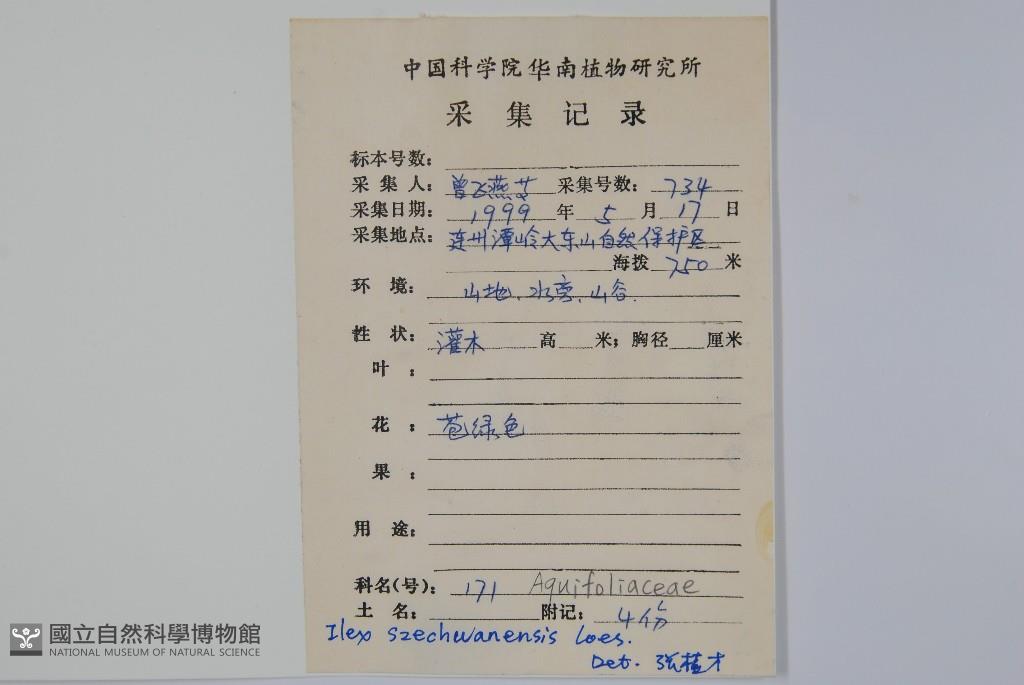 中国科学院华南植物研究所
采集记录
标本号数:
采集人: 曾飞燕 采集号数: 734
采集日期: 1999 年 5 月 17 日
采集地点: 连州潭岭大东山自然保护区
海拨 750 米
环境: 山地、水旁、山谷.
性状: 灌木 高 米; 胸径 厘米
叶:
花: 苞绿色
果:
用途:
科名(号): 171 Aquifoliaceae
土名: 附记: 4份
Ilex szechwanensis Loes.
Det. 张植才
國立自然科學博物館
NATIONAL MUSEUM OF NATURAL SCIENCE